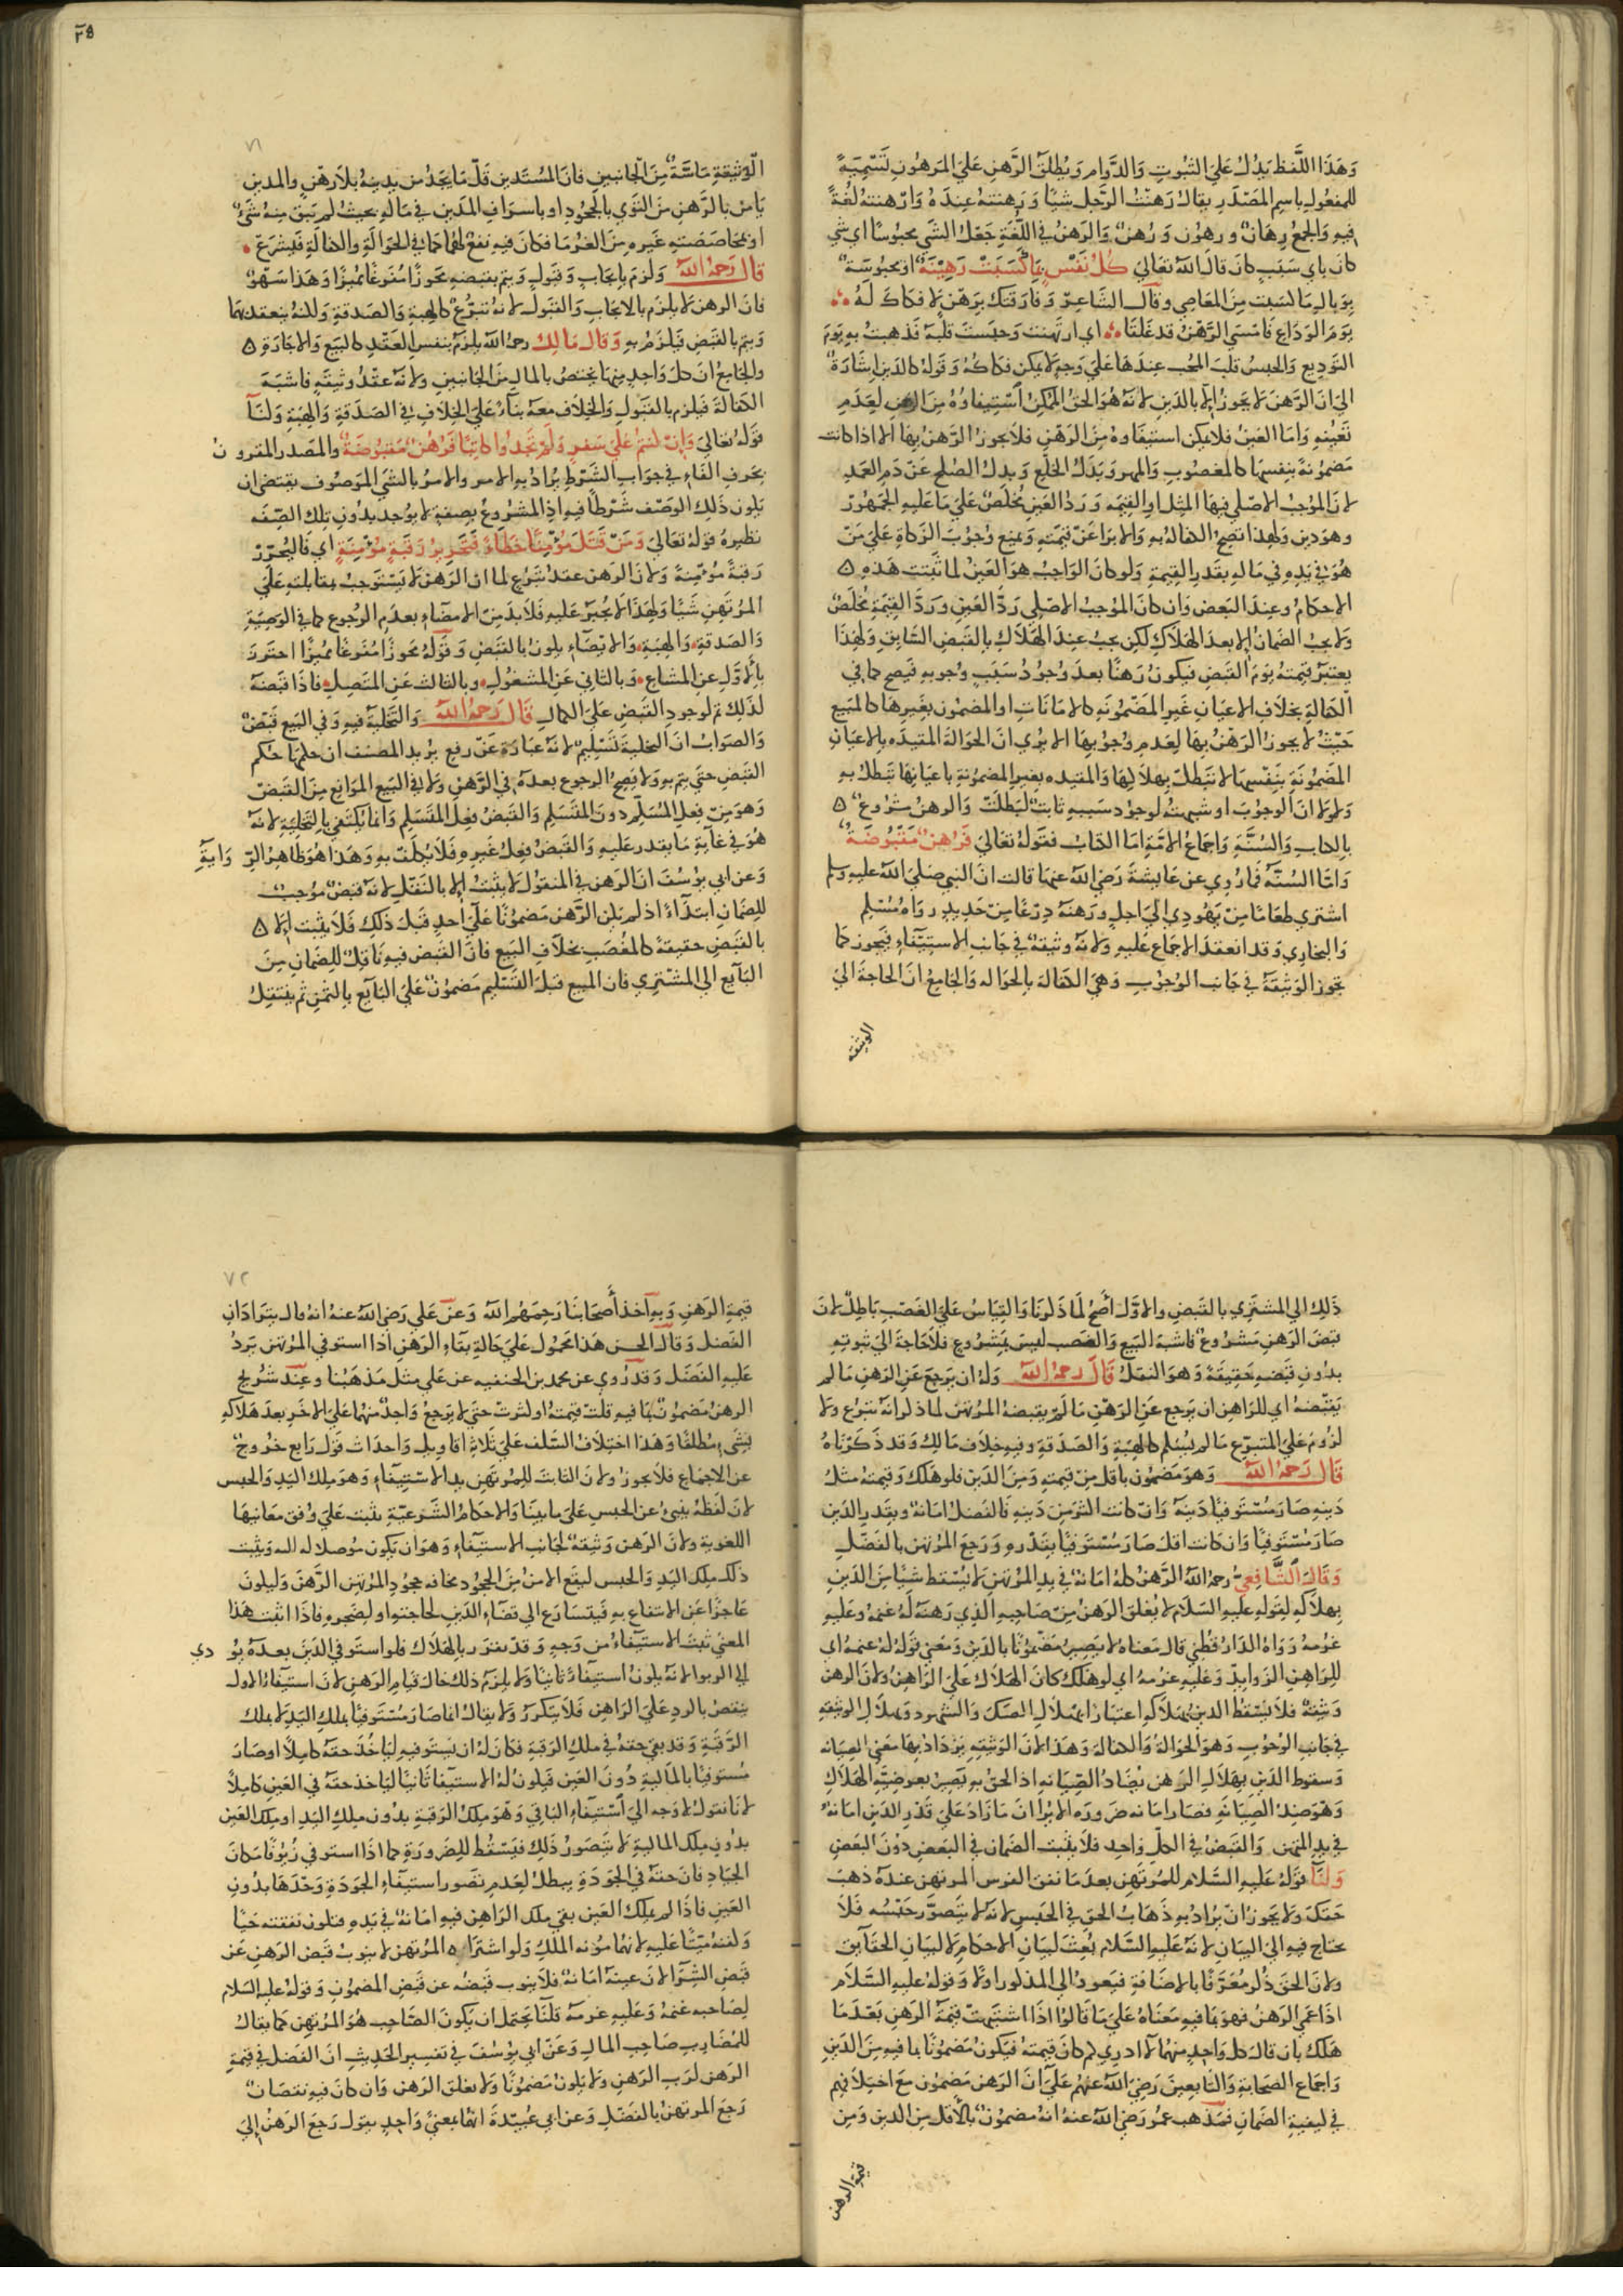 وَهَذَا اللَّفظ يَدُلُّ عَلَى الثبُوتِ وَالدَّوامِ وَيُطلقُ الرَّهنِ عَلَى المرهُونِ تَسْمِيَةً
للمفعُولِ باسمِ المصْدَرِ يقالُ رَهَنتُ الرَّجلَ شيًا وَرَهنتهُ عِندَهُ وَارْهنتهُ لغُةً
فيه وَالجمعُ رِهَانٌ ورهُون وَرُهنٌ وَالرَهنُ في اللُّغَةِ جَعْلُ الشَي محبوسًا اي شي
كانَ بايِ سَبَبٍ كانَ قال اللهُ تعَالى كُلُّ نَفسٍ بمَا كَسَبَتْ رَهِيْنَةٌ اي محبُوسَةٌ
بِوَبالِ مَا كسبَت مِنَ المعَاصِي وقالَ الشَّاعِر وَفَارَقتكَ بِرَهْنٍ لا فكاكَ لَهُ
يَومَ الوَدَاعِ فَامْسَى الرَّهْنُ قد غَلقَا اي ارتهنت وَحبسَت قلبَهُ فذهبتْ بهِ يَومَ
التوَدِيعِ وَالحبسُ قلبَ المحُب عندَهَا عَلَى وَجهٍ لا يمكن فكاكهُ وَقَولهُ كالدَينِ اِشَارَةٌ
الى ان الرَّهنَ لا يجوزُ الا بالدَينِ لانهُ هُوَ الحقُ الممكنُ استيفاوُهُ مِنَ الرهنِ لعَدَمِ
تعَيُّنهِ وَامَا العَينُ فلا يمكن استيفَاوهُ مِنَ الرَهْنِ فلا يجوزُ الرَّهنُ بهَا الا اذا كانت
مَضمُونَةً بِنفسِهَا كالمغصُوبِ وَالمهرِ وَبَدَلِ الخلْعِ وَبدلِ الصُلحِ عَنْ دَمِ العَمدِ
لانَ الموُجبُ الاصلي فيهَا المِثل او القِيمَه وَرَدُ العَينِ مُخلَصٌ عَلَى مَا عَليهِ الجمهُورُ
وهوَ دين وَلهذا تصِحُ الكفالهُ بهِ وَالابرَا عَنْ قيمَتهِ وَيمنع وُجُوبَ الزَكاةِ عَلَى مَنْ
هُوَ في يَدِهِ في مَالهِ بقَدرِ القِيمةِ وَلو كانَ الوَاجبُ هوَ العَينُ لما ثبَتت هَذهِ
الاحكامُ وعِندَ البَعضِ وَان كانَ الموُجبُ الاصْلي رَدُّ العَينِ وَرَدُّ القِيمَةِ مُخلَصٌ
وَلا يجبُ الضَمانُ الا بعدَ الهَلاكِ لكِن يجبُ عِندَ الهَلاكِ بالقبضِ السَّابقِ وَلهَذَا
يعتبَرُ قيمَتهُ يَومَ القَبضِ فيكونُ رَهنًا بعدَ وُجُودُ سَبَبِ وُجوبهِ فيَصِح كمَا في
الكفالةِ بخلافِ الاعيَانِ غَيرِ المَضمُونَةِ كالامَانَاتِ او المضمُونِ بغيرِهَا كالمَبَيعِ
حَيْثُ لا يجوزُ الرَهْنُ بهَا لِعَدمِ وُجُوبِهَا الا يُرى انَ الحوَالةَ المقيدَه بالاعيَانِ
المضمُونَةِ بنفسِهَا لا تبطلُ بهلاكِهَا وَالمقيده بغيرِ المضمُونةِ باعيَانِهَا تبطلُ بهِ
وَلو لا انَ الوجُوبَ او شبهتهُ لوجُودِ سَببهِ ثابتٌ لبَطلَتْ وَالرهنُ مشرُوعٌ
بالكِتابِ وَالسُنَّةِ وَاجماعِ الامَةِ امَا الكتابُ فقولهُ تعَالى فَرُهنٌ مَقبُوضَةٌ
وَامَّا السُنَّهُ فمَا رُوي عن عَايشةَ رَضي اللهُ عنهَا قالت انَ النبي صَلى اللهُ عليهِ وسلم
اشترى طعَامًا مِنْ يَهُودي الى اجلٍ ورَهنهُ دِرْعًا مِنْ حَدِيدٍ رواهُ مُسْلم
وَالبخاري وَقد انعقدَ الاجماع عَليهِ وَلانَهُ وَثيقةٌ في جَانبِ الاستِيفاءِ فيَجوز كمَا
تجوز الوثيقَةُ في جَانبِ الوُجوُبِ وَهيَ الكفالهُ بالحوَاله وَالجامِعُ انَ الحَاجةَ الى
الوثيقه
٣٥
٧١
الوَثيقةِ مَاسَّةٌ مِنَ الجانِبينِ فانَ المُستَدين قَلَّ مَا يجَدُ من يدينهُ بلا رَهْنٍ والمدين
يَامنُ بالرَهنِ مِنَ التوي بالجحُودِ او باسرَافِ المدَينِ في مَالهِ بحيثُ لم يَبقَ مِنهُ شَئٌ
او بمحَاصَصَتهِ غَيرهِ مِنَ الغُرَمَا فكانَ فيهِ نفعٌ لهُمَا كمَا في الحَوَالةِ والكفالةِ فَيشرَعُ
قال رَحمهُ اللهُ وَلزمَ باِيجَابٍ وَقبَولٍ وَيتمُ بقبضهِ محوَزًا مُفرغًا مميزًا وَهَذا سَهوٌ
فانَ الرهن لا يلزمُ بالايجَابِ وَالقبَول لانهُ تبرُّعٌ كالهبةِ وَالصَدقةِ وَلكنهُ ينعقدُ بهَا
وَيتم بالقبضِ فيلزمُ بهِ وَقال مَالِك رحمهُ اللهُ يلزَمُ بنفسِ العَقدِ كالبيَع وَالاجَارَةِ
والجامِعُ انَ كلَ وَاحدٍ منهمَا يختصُ بالمالِ مِنَ الجانبينِ وَلانهُ عقدُ وَثيقةٍ فاشبَهَ
الكفالةَ فيلزم بالقبَولِ وَالخِلافُ معهُ بناءً عَلى الخِلافِ في الصَدَقةِ وَالهِبَةِ وَلنَا
قوَلهُ تعَالى وَاِنْ كنتمْ عَلى سَفرٍ وَلمْ تجَدُوا كاتِبًا فَرُهنٌ مَقبُوضَةٌ والمصَدرُ المقرون
بحَرفِ الفَاءِ في جوَابِ الشَرْطِ يُرادُ بهِ الامرُ والامرُ بالشي الموَصُوفِ يقتضي ان
يَكونَ ذَلكَ الوَصْفُ شَرْطًا فيهِ اذِ المشْرُوعُ بصِفةٍ لا يوُجدُ بدُونِ تلكَ الصّفَهِ
نظيرهُ قولهُ تعَالى وَمَنْ قَتَلَ مُؤْمِنًا خَطَاءً فَتَحْرِيرُ رَقبَةٍ مؤْمِنَةٍ اي فَليُحَرِّرْ
رَقبةً مُومِنَةً وَلانَ الرَهن عقدُ تَبرُعٍ لما ان الرَهنَ لا يَستَوجبُ بمقابلتهِ عَلى
المُرتَهِنِ شَيًا وَلهَذَا لا يُجْبَرُ عَليهِ فَلا بُدَ مِنَ الامضَاءِ بعدَمِ الرُجوع كمَا في الوَصِيَّةِ
وَالصَدقةِ وَالهِبَةِ وَالامضَاءِ يكونُ بالقَبْضِ وَقولهُ محوزًا مُفرغًا مميزًا احترزَ
بالاوَّل عَنِ المشَاعِ وَبالثاني عَنِ المشغُولِ وبالثالثِ عَنِ المتَصِلِ فاذَا قبَضَهُ
كذلكَ تم لوجودِ القبضِ عَلى الكمالِ قالَ رَحمهُ اللهُ وَالتَخليَةُ فيهِ وَفي البَيعِ قَبْضٌ
وَالصوَابُ انَ التخليَةَ تَسليمٌ لانهُ عِبَارَةٌ عَنْ رَفعِ يُريد المصنف ان حكمهَا حكم
القبَضِ حتَى يتم بهِ وَلا يَصِحُ الرجوع بعدَهُ في الرَهْنِ وَلا في البَيعِ الموَانعِ مِنَ القَبْضِ
وَهوَ مِنْ فعلِ المُسَلِمِ دونَ المتَسَلِم وَالقَبضُ فعلُ المتَسَلِّمِ وَانما يكتفي بالتخليَةِ لانهُ
هُوَ في غَايةِ مَا يقدر عَليهِ وَالقبَضُ فعلُ غَيرهِ فَلا يُكلَّفُ بهِ وَهَذا هُوَ ظاهِرُ الرِّوَايةِ
وَعن ابي يوُسُفَ انَ الرَهن في المنقوُل لا يثبتُ الا بالنقلِ لانهُ قبضٌ موُجِبٌ
للِضَمانِ ابتدَاءً اذ لم يَكن الرَّهن مَضموُنًا عَلى احدٍ قبلَ ذلكَ فَلا يثبت الا
بالقبَضِ حقيقةً كالمغْصَبِ بخلافِ البَيعِ فانَ القبَضَ فيهِ نَاقلٌ للِضمانِ مِنَ
البَايعِ الى المشْتَرِي فان المبيع قبلَ التَسْليم مَضمُونٌ عَلى البَايعِ بالثمنِ ثم ينتقِلُ
ذَلكَ الى المشترِي بالقَبضِ والاوَّلُ اَصَحُّ لمَا ذَكرنَا وَالقِيَاسُ عَلَى الغَصْبِ بَاطِلٌ لانَ
قبضَ الرَهنِ مَشرُوعٌ فاشبهَ البَيعَ وَالغصب ليسَ بمَشرُوعٍ فلا حَاجةَ الى ثبوتهِ
بدُونِ قبَضهِ حَقِيقَةً وَهوَ النقلُ قالَ رَحمهُ اللهُ وَلهُ ان يَرجعَ عَنِ الرَهنِ مَا لم
يَقبضهُ اي للرَاهِنِ ان يرجع عَنِ الرَهْنِ مَا لمْ يقبضهُ المُرتهن لما ذكرنا انهُ تبَرُعٌ وَلا
لزُومَ عَلَى المتبرّعِ مَا لم يُسَلم كالهِبَةِ وَالصَدَقةِ وَفيهِ خِلاف مَالِكٍ وَقد ذَكَرْنَاهُ
قالَ رَحمهُ اللهُ وَهوَ مَضمُون باقلَ مِنْ قيمَتهِ وَمِنَ الدَين فلو هَلكَ وَقيمَتهُ مثلُ
دَينهِ صَارَ مُسْتَوفيًا دَينهُ وَانْ كانت اكثرَ مِنْ دَينهِ فالفَضلُ امَانةٌ وبقدرِ الدَينِ
صَارَ مُسْتَوفيًا وَان كانت اقلَ صَارَ مُسْتَوفيًا بقَدْرهِ وَرَجعَ المُرتهن بالفَضْلِ
وَقالَ الشَّافِعي رحمهُ اللهُ الرَّهنُ كلهُ امَانةٌ في يدِ المُرتهنِ لا يَسْقط شَيًا مِنَ الدَينِ
بهلاكهِ لقَولهِ عليهِ السَّلام لا يُغلقُ الرَهنُ مِنْ صَاحبهِ الذي رَهنَهُ لَهُ غنمهُ وعَليهِ
غرمهُ رَوَاهُ الدَارُ قُطني قال مَعناهُ لا يَصِيرُ مَضْمُونًا بالدَينِ وَمَعنى قوَلهِ لهُ غنمهُ اي
للرَاهنِ الزَوايدُ وَعَليهِ غرمهُ اي لو هَلكَ كانَ الهَلاكُ عَلَى الرَاهِنِ وَلانَ الرهنَ
وَثيقةٌ فلا يَسْقطُ الدينُ بهَلاكهِ اعتبَارًا بهَلاكِ الصَكِ وَالشهُودِ وَبهلاكِ الوثيقةِ
في جَانبِ الوُجوُبِ وَهوَ الحوَالةُ وَالكفاله وَهَذا لانَ الوَثيقةِ يَزْدَادُ بهَا مَعنى الصِيَانه
وَسقوط الدَينِ بهَلاكِ الرهن يُضَادُ الصِّيَانهِ اذ الحقُ بهِ يَصيرُ بعَرضِيَّةِ الهَلاكِ
وَهوَ ضِدُ الصِيَانةِ فصَارَ امَانه ضرُورَه الا يُرا انَ مَا زَادَ عَلى قَدْرِ الدَينِ امَانهٌ
في يدِ المرتهن وَالقبَضُ في الكلِّ وَاحِدٍ فلا يثبت الضَمان في البَعضِ دوُنَ البعَضِ
وَلنَا قولهُ عَليهِ السَّلام للمُرتَهِنِ بعدَمَا نفقَ الفرَسُ المرتهن عندَهُ ذهَبَ
حَقكَ وَلا يَجوزُ انْ يُرادُ بهِ ذَهَابُ الحقِ في الحَبسِ لانهُ لا يتَصوّرُ حَبْسُه فَلا
يحتاج فيهِ الى البيَانِ لانهُ عَليهِ السَّلام بُعِثَ لبيَانِ الاحكامِ لا لبيَانِ الحقَايقِ
ولانَ الحقَ ذُكرَ مُعَرَّفًا بالاضَافةِ فيَعودُ الى المذكُورِ اولا وَقولهُ عليهِ السَّلام
اذا عمي الرَهنُ فهوَ بمَا فيهِ مَعنَاهُ عَلى مَا قَالوُا اذَا اشتبَهتْ قيمَةُ الرَهنِ بَعْدَمَا
هَلكَ بان قالَ كل وَاحِدٍ منهمَا لا ادرِي كم كانَ قيمتهُ فيَكونُ مَضمُونًا بما فيهِ مِنَ الدَينِ
وَاجماع الصَحَابةِ وَالتابِعينَ رَضي اللهُ عنهُم عَلى انَ الرَهن مَضمُون معَ اختلافهم
في كيفيةِ الضَمانِ فمَذهبُ عمُر رَضي اللهُ عنهُ انهُ مضمُونٌ بالاقلِ مِنَ الدينِ وَمِن
قيمة الرهن
٧٢
قيمَةِ الرَهنِ وَبهِ اخذَ اَصْحَابنَا رَحِمَهُم اللهُ وَعنْ عَلي رَضي اللهُ عنهُ انهُ قال يتَرادَانِ
الفضلَ وَقالَ الحسن هَذا محموُل عَلى حَالةِ بقَاءِ الرَهنِ اذا استوفى المرُتهن يَردُ
عَليهِ الفَضلَ وَقد رُوي عن محمد بن الحنفيه عن عَلي مثل مَذهبْنا وعِندَ شُريح
الرهنُ مَضموُنٌ بمَا فيهِ قلتْ قيمتهُ او كثرتْ حتى لا يَرجعُ وَاحدٌ منهُما عَلى الاخَرِ بعدَ هَلاكهِ
بشَئٍ مُطلقًا وَهَذا اختِلافُ السّلفِ عَلى ثلاثةِ اقاويلَ وَاحدَاثُ قولٍ رَابعٍ خرُوجٌ
عن الاجمَاعِ فلا يجوزُ وَلانَ الثابتَ للمُرتَهِنِ يد الاستيفَاءِ وَهوَ مِلكُ اليَدِ وَالحبس
لانَ لَفظَهُ ينبئُ عن الحبسِ عَلى مَا بينَا وَالاحكامُ الشَرعيَّةِ يثبت عَلى وُفقِ مَعَانيهَا
اللغويةِ ولانَ الرَهن وَثيقةٌ لجَانبِ الاستيفاءِ وَهوَ ان يكون موُصلا له اليه وَيثبت
ذلكَ بملِك اليَدِ وَالحبس ليقعَ الامن مِنَ الجحُودِ مخافه جحُودِ المرُتهن الرَّهنَ وَليكونَ
عَاجزًا عَنِ الانتفاعِ بهِ فيتسَارَع الى قضَاءِ الدَينِ لحاجتهِ او لضجرهِ فاذا ثبت هَذا
المعنى ثبتَ الاستيفَاءُ من وَجهٍ وَقد تقرَرَ بالهَلاك فلو استوفى الدَينَ بعدَهُ يؤدي
الى الربوا لانهُ يكونُ استيفاءً ثانيًا وَلا يلزمُ ذلكَ حالَ قيامِ الرَهنِ لانَ استيفَاءُ الاول
ينتقضُ بالردِ عَلى الرَاهِنِ فَلا يَتكرَرُ وَلا يقالُ انما صَارَ مُسْتَوفيًا بملكِ اليَدِ لا بملك
الرَّقبَةِ وَقد بقي حقهُ في ملكِ الرَقبةِ فكانَ لهُ ان يَستوفيهِ ليَاخذَ حقهُ كامِلًا او صَارَ
مُستوفيًا بالماليةِ دُونَ العَينِ فيكونُ لهُ الاستيفَا ثانيًا ليَاخذَ حقهُ في العَينِ كامِلًا
لانا نقوُل لا وَجه الى استيفاءِ البَاقي وَهوَ مِلكُ الرَقبةِ بدُونِ ملكِ اليَدِ او مِلكِ العَينِ
بدُونِ ملكِ الماليةِ لا يَتصَورُ ذلكَ فيَسقُط للِضَرورَةِ كمَا اذَا استوفى زُيوُفًا مكانَ
الجيادِ فانَ حقهُ في الجَودَةِ يبطلُ لعَدمِ تصَورِ استيفاءِ الجَودَةِ وَحْدَهَا بدُونِ
العَينِ فاذَا لم يملك العَين بقي ملك الرَاهِن فيهِ امَانةً في يَدهِ فتكون نفقتهُ حيًا
وَكفنهُ مَيّتًا عَليهِ لانهَا مؤنه الملكِ وَلو اشترَاهُ المرُتهن لا ينوبُ قبَض الرَهنِ عَنْ
قبَض الشِرَا لانَ عينهُ امَانةٌ فلا ينوب قبضهُ عن قبَضِ المضموُنِ وَقولهُ عليه السّلام
لِصَاحبه غنمهُ وَعَليهِ غرمهُ قلنَا يحتَملُ ان يكونَ الصَّاحِب هُوَ المُرتهِن كمَا يقالُ
للمُضَاربِ صَاحِبِ المالِ وَعَنْ ابي يوُسُفَ في تفسيرِ الحديثِ انَ الفَضل في قيمةِ
الرَهن لرَب الرَهنِ وَلا يكون مَضمُونًا وَلا يغلق الرَهن وَان كانَ فيهِ نقصَانٌ
رَجعَ المرتهنُ بالفَضلِ وَعن ابي عُبيّدةَ انهَا بمعنىً وَاحِدٍ يقوُل رَجعَ الرَهنُ الى